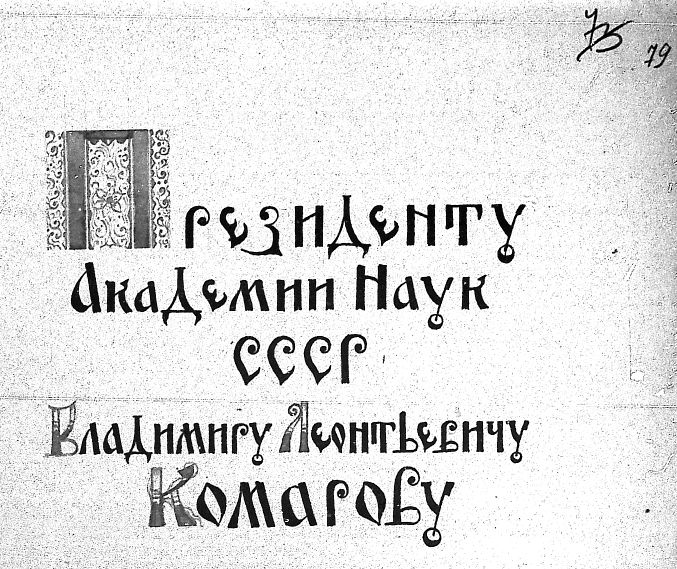 79
Президенту
Академии Наук
СССР
Владимиру Леонтьевичу
Комарову